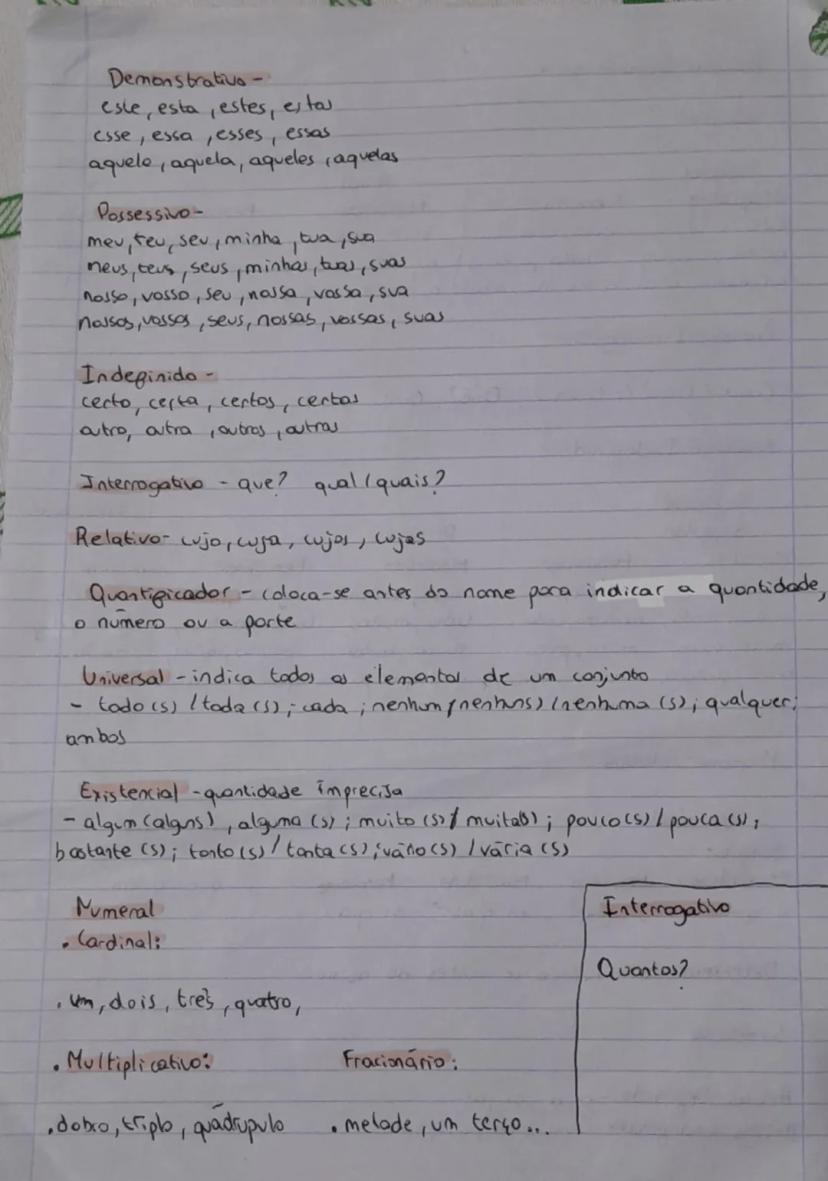 Demonstrativo -
este, esta, estes, estas
esse, essa, esses, essas
aquele, aquela, aqueles, aquelas
Possessivo -
meu, teu, seu, minha, tua, sua
meus, teus, seus, minhas, tuas, suas
nosso, vosso, seu, nossa, vossa, sua
nossos, vossos, seus, nossas, vossas, suas
Indefinido -
certo, certa, certos, certas
outro, outra, outros, outras
Interrogativo - que? qual/quais?
Relativo - cujo, cuja, cujos, cujas
Quantificador - coloca-se antes do nome para indicar a quantidade,
o número ou a parte
Universal - indica todos os elementos de um conjunto
- todo(s) / toda(s); cada; nenhum/nenhuns) / nenhuma(s); qualquer;
ambos
Existencial - quantidade imprecisa
- algum (alguns), alguma(s); muito(s) / muita(s); pouco(s) / pouca(s);
bastante(s); tanto(s) / tanta(s); vário(s) / vária(s)
Numeral
• Cardinal:
• um, dois, três, quatro,
• Multiplicativo: Fracionário:
• dobro, triplo, quádrupulo • metade, um terço...
Interrogativo
Quantos?